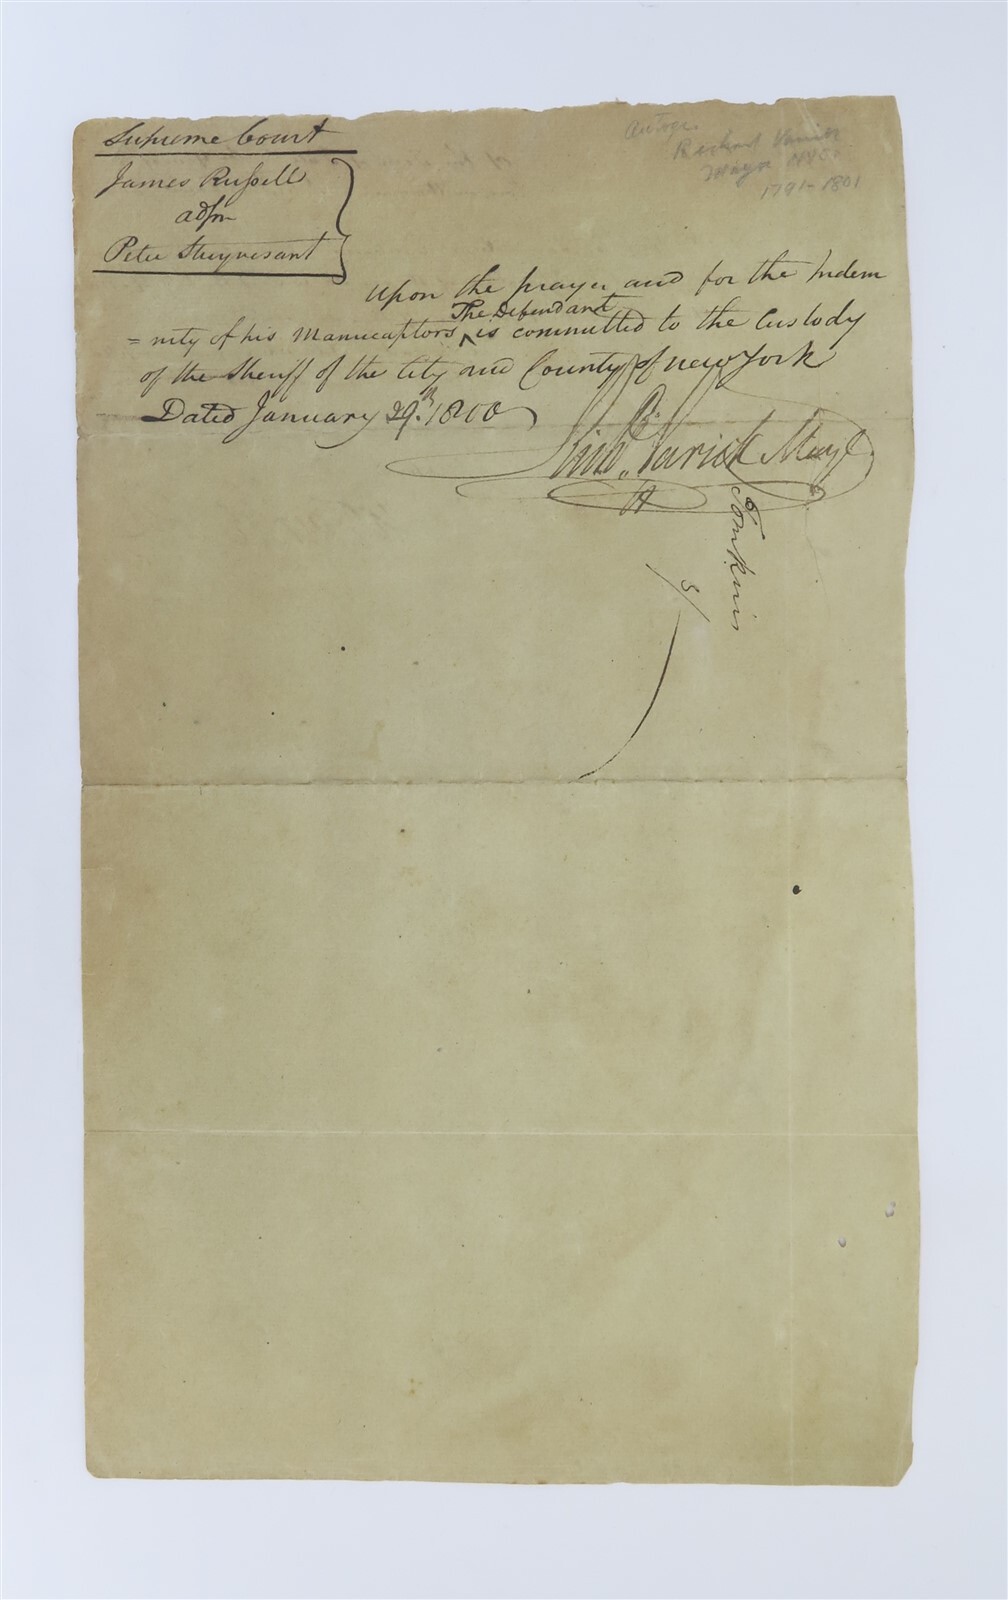 Supreme Court
James Russell
ads
Peter Stuyvesant
Autogr.
Richard Varick
Mayor NYC
1791-1801
Upon the prayer and for the Indem
=nity of his Manucaptors ^ The Defendant is committed to the Custody
of the Sheriff of the City and County of New York
Dated January 29th. 1800
Richd. Varick Mayr
Tomkins